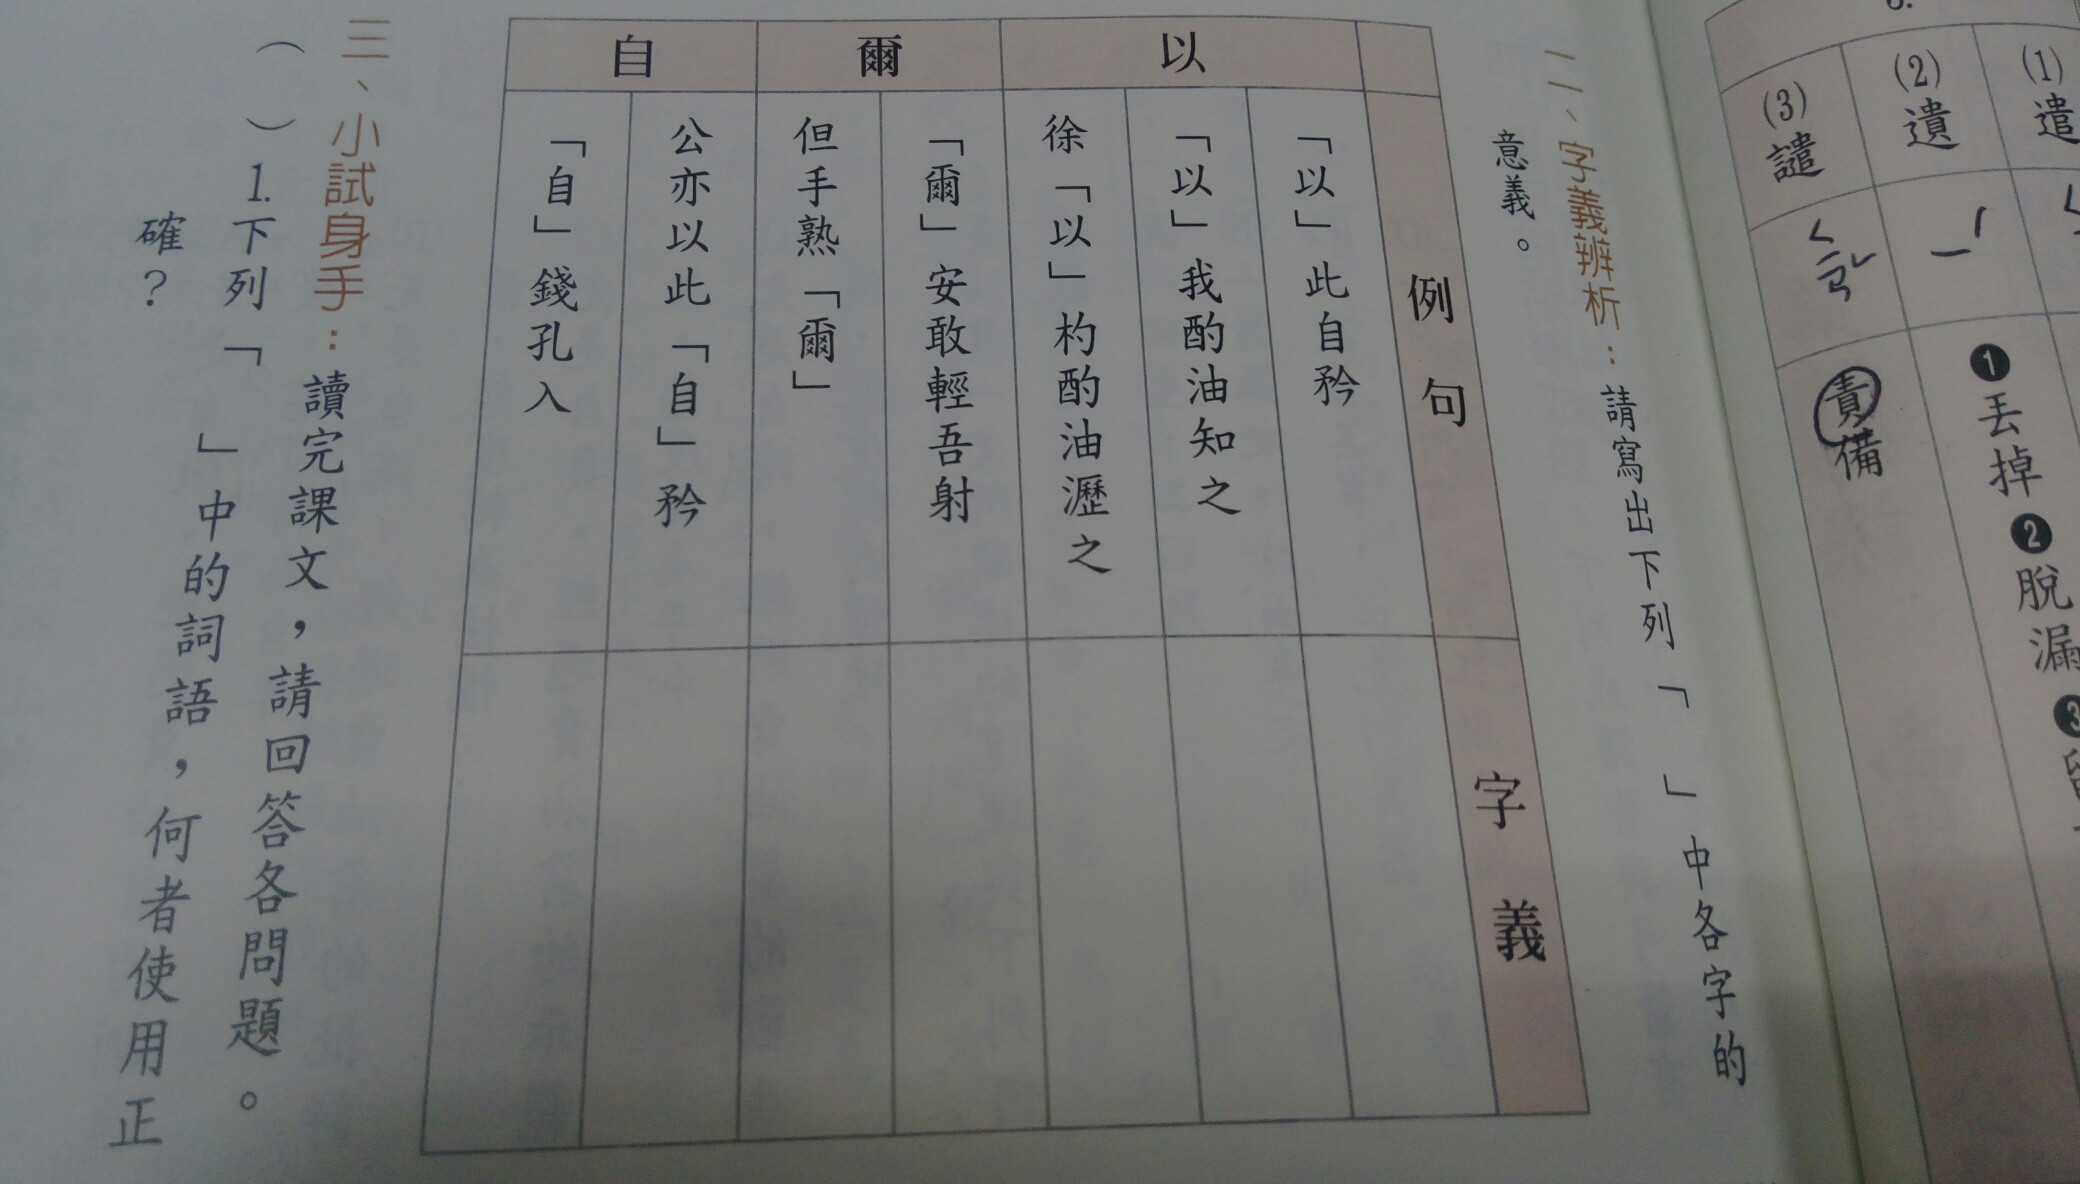 (1)遣
(2)遺
(3)譴
ㄑㄧㄢˇ
責備
❶丟掉❷脫漏❸
二、字義辨析：請寫出下列「　」中各字的
意義。
例句
字義
以
「以」此自矜
「以」我酌油知之
徐「以」杓酌油瀝之
爾
「爾」安敢輕吾射
但手熟「爾」
自
公亦以此「自」矜
「自」錢孔入
三、小試身手：讀完課文，請回答各問題。
（　）1.下列「　」中的詞語，何者使用正
確？